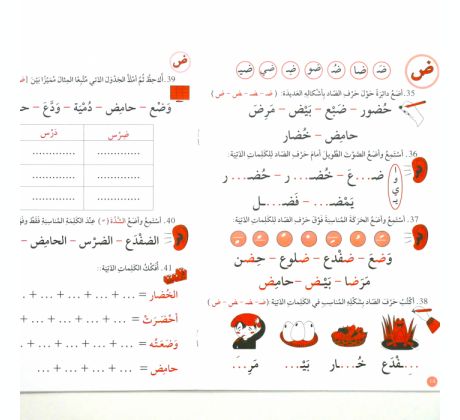 ض
ضَـ ضَا ضُـ ضُو ضِـ ضِي ضـ
35. أَضَعُ دائِرَةً حَوْلَ حَرْفِ الضّادِ بِأَشْكالِهِ العَديدَة: (ضـ - ـضـ - ـض - ض)
حُضور - ضَبْع - بَيْض - مَرِضَ
حامِض - خُضار
36. أَسْتَمِعُ وأَضَعُ الصَّوْتَ الطَّويلَ أمامَ حَرْفِ الضّادِ لِلكَلِماتِ الآتِيَة:
ا و ي
ضـ...عَ - خُضـ...ر - حُضـ...ر
يَمْضـ... - فَضـ...ل
37. أَسْتَمِعُ وأَضَعُ الحَرَكَةَ المُناسِبَةَ فَوْقَ حَرْفِ الضّادِ لِلكَلِماتِ الآتِيَة:
وَضَعَ - ضفْدَع - ضلوع - حِضْن
مَرَضا - بَيْض - حامِض
38. أَكْتُبُ حَرْفَ الضّادِ بِشَكْلِهِ المُناسِبِ في الكَلِماتِ الآتِيَة: (ضـ - ـضـ - ـض - ض)
...ِفْدَع خُـ...ـار بَيْـ... مَرِ...
ض
39. أُلاحِظُ ثُمَّ أَمْلَأُ الجَدْوَلَ الآتي مُتَّبِعًا المِثالَ مُمَيِّزًا بَيْنَ
وَضْع - حامِض - دُمْيَة - وَدَّعَ -
ضِرْس دَرْس
............ ............
............ ............
40. أَسْتَمِعُ وأَضَعُ الشَّدَّة (ّ) عِنْدَ الكَلِمَةِ المُناسِبَةِ فَقَطْ
الضفْدَع - الضرْس - الحامِض -
41. أُفَكِّكُ الكَلِماتِ الآتِيَة:
الخُضار = ... + ... + ... + ...
أَحْضَرَتْ = ... + ... + ... + ...
وَضَعَتْه = ... + ... + ... + ...
حامِض = ... + ... + ... + ...